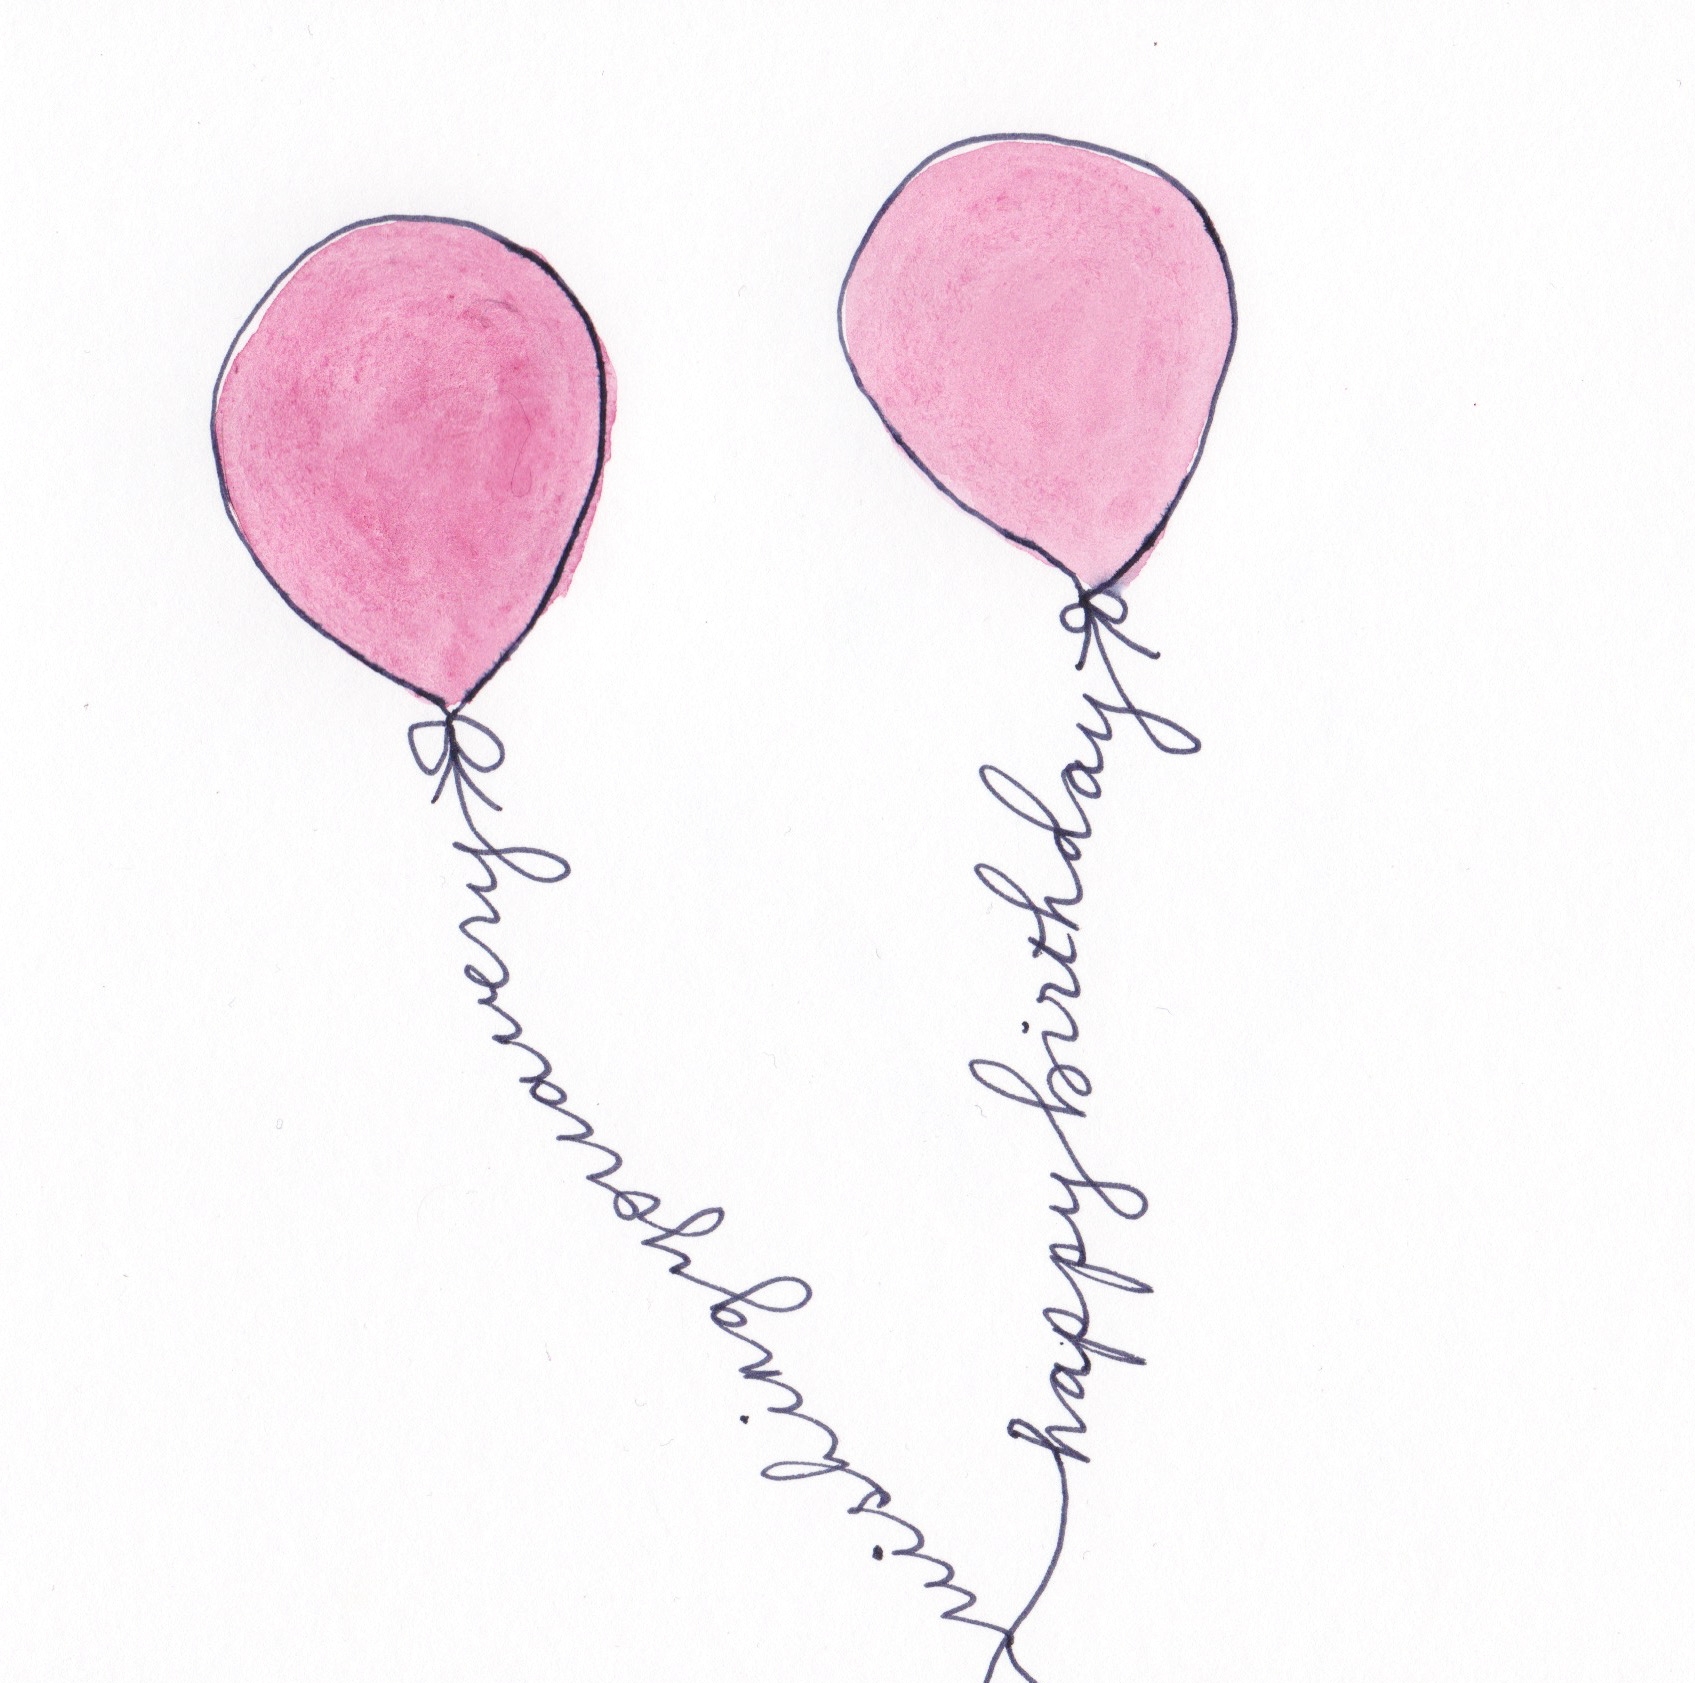 wishing you a very
happy birthday